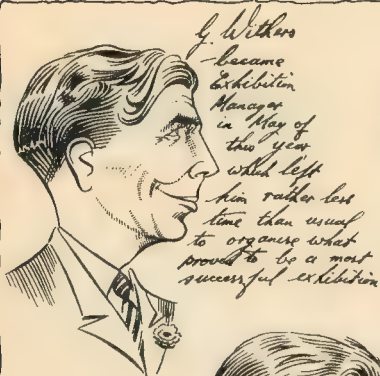 G. Withers
became
Exhibition
Manager
in May of
this year
which left
him rather less
time than usual
to organise what
proved to be a most
successful exhibition